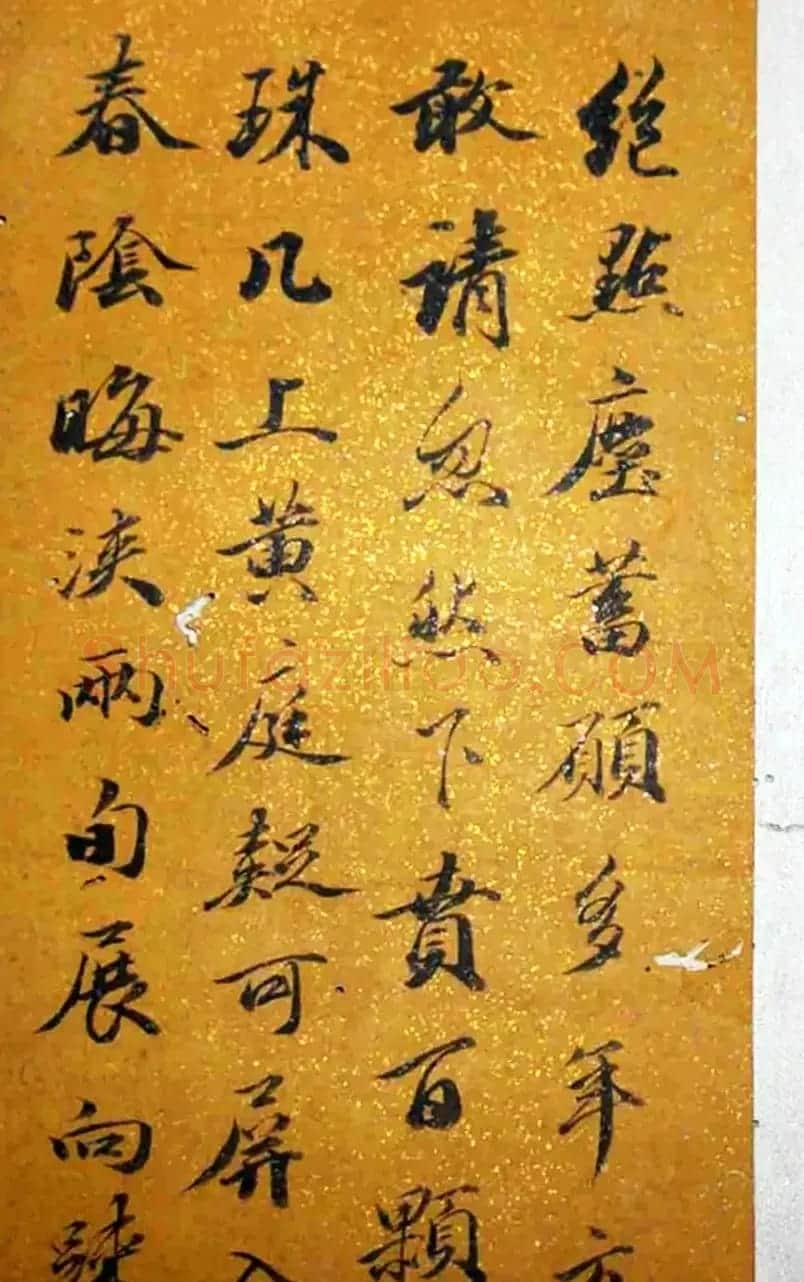 絕點塵蓄願多年
敢請忽然下賁百顆
珠几上黃庭疑可屏
春陰晦浹兩旬展向
Shufaziliao.COM